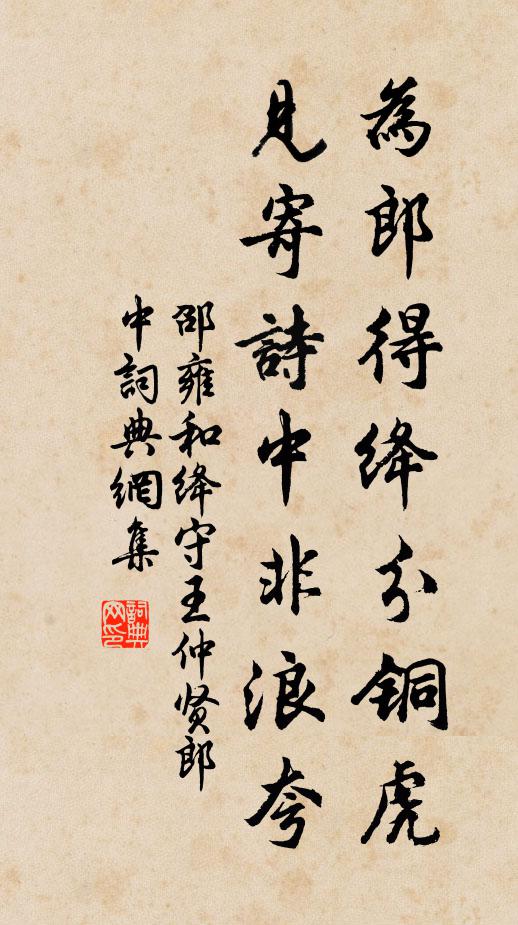 為郎得絳分銅虎
見寄詩中非浪夸
邵雍和絳守王仲贤郎
中詞典網集
詞典
网印